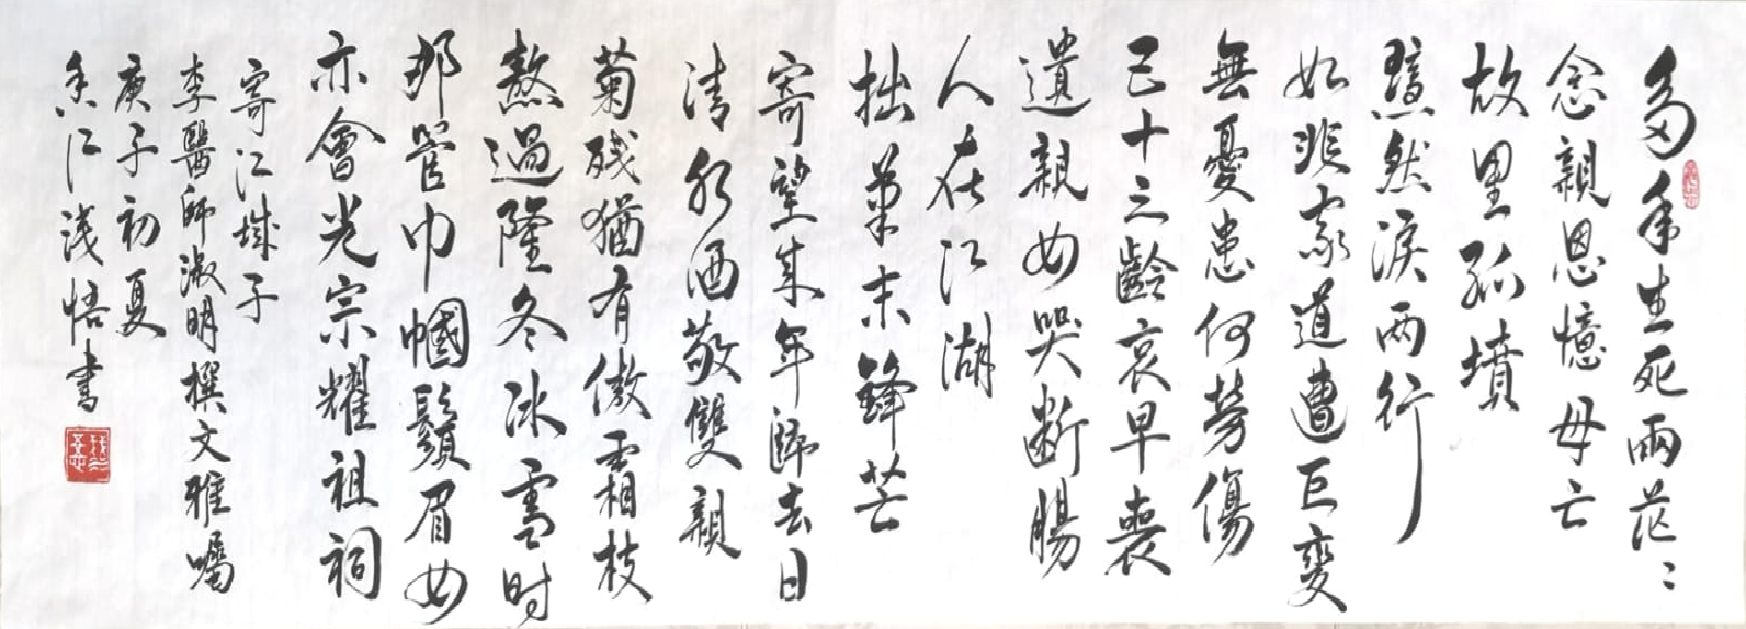 多年生死兩茫〻
念親恩憶母亡
故里孤墳
然淚兩行
如非家道遭巨變
無憂患何勞傷
十之齡哀早喪
遺親女哭断腸
人在江湖
拙筆末鋒芒
寄望來年歸去日
清酒敬雙親
菊殘猶有傲霜枝
熬過隆冬冰雪时
那管巾幗鬚眉女
亦會光宗耀祖祠
寄江城子
李醫師淑明撰文雅囑
庚子初夏
香江淺悟書